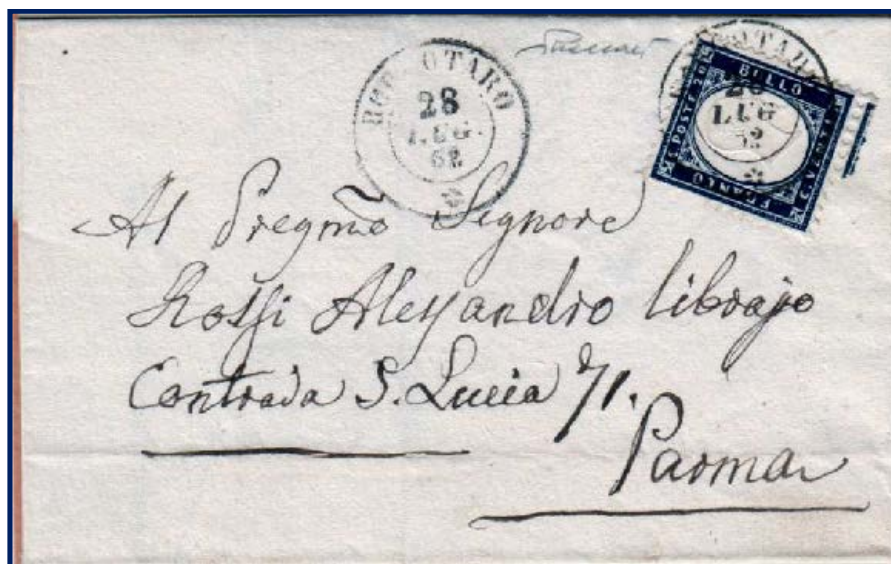 BORGOTARO
28
LUG.
62
BOLLO
C. POSTE 20
CENTES
FRANCO
28
LUG
62
Al Pregmo Signore
Rossi Alessandro librajo
Contrada S. Lucia 71.
Parma